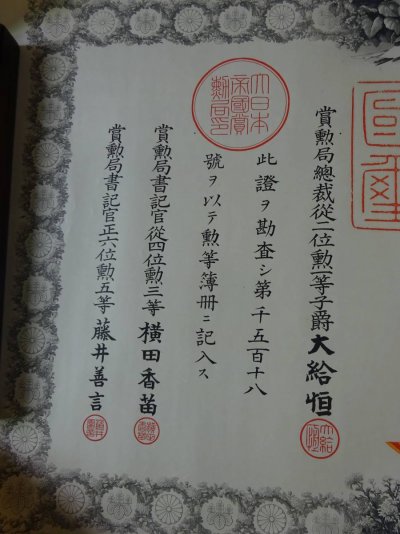 賞勲局總裁從二位勲一等子爵大給恒
此證ヲ勘査シ第千五百十八
號ヲ以テ勲等簿册ニ記入ス
賞勲局書記官從四位勲三等横田香苗
賞勲局書記官正六位勲五等藤井善言
大日本帝國賞勲局印